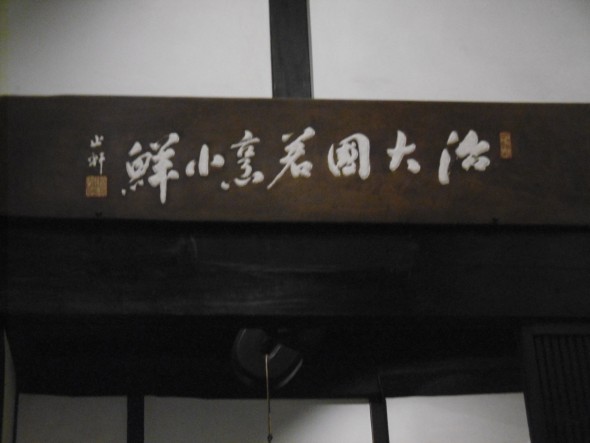 治大國若烹小鮮
山軒